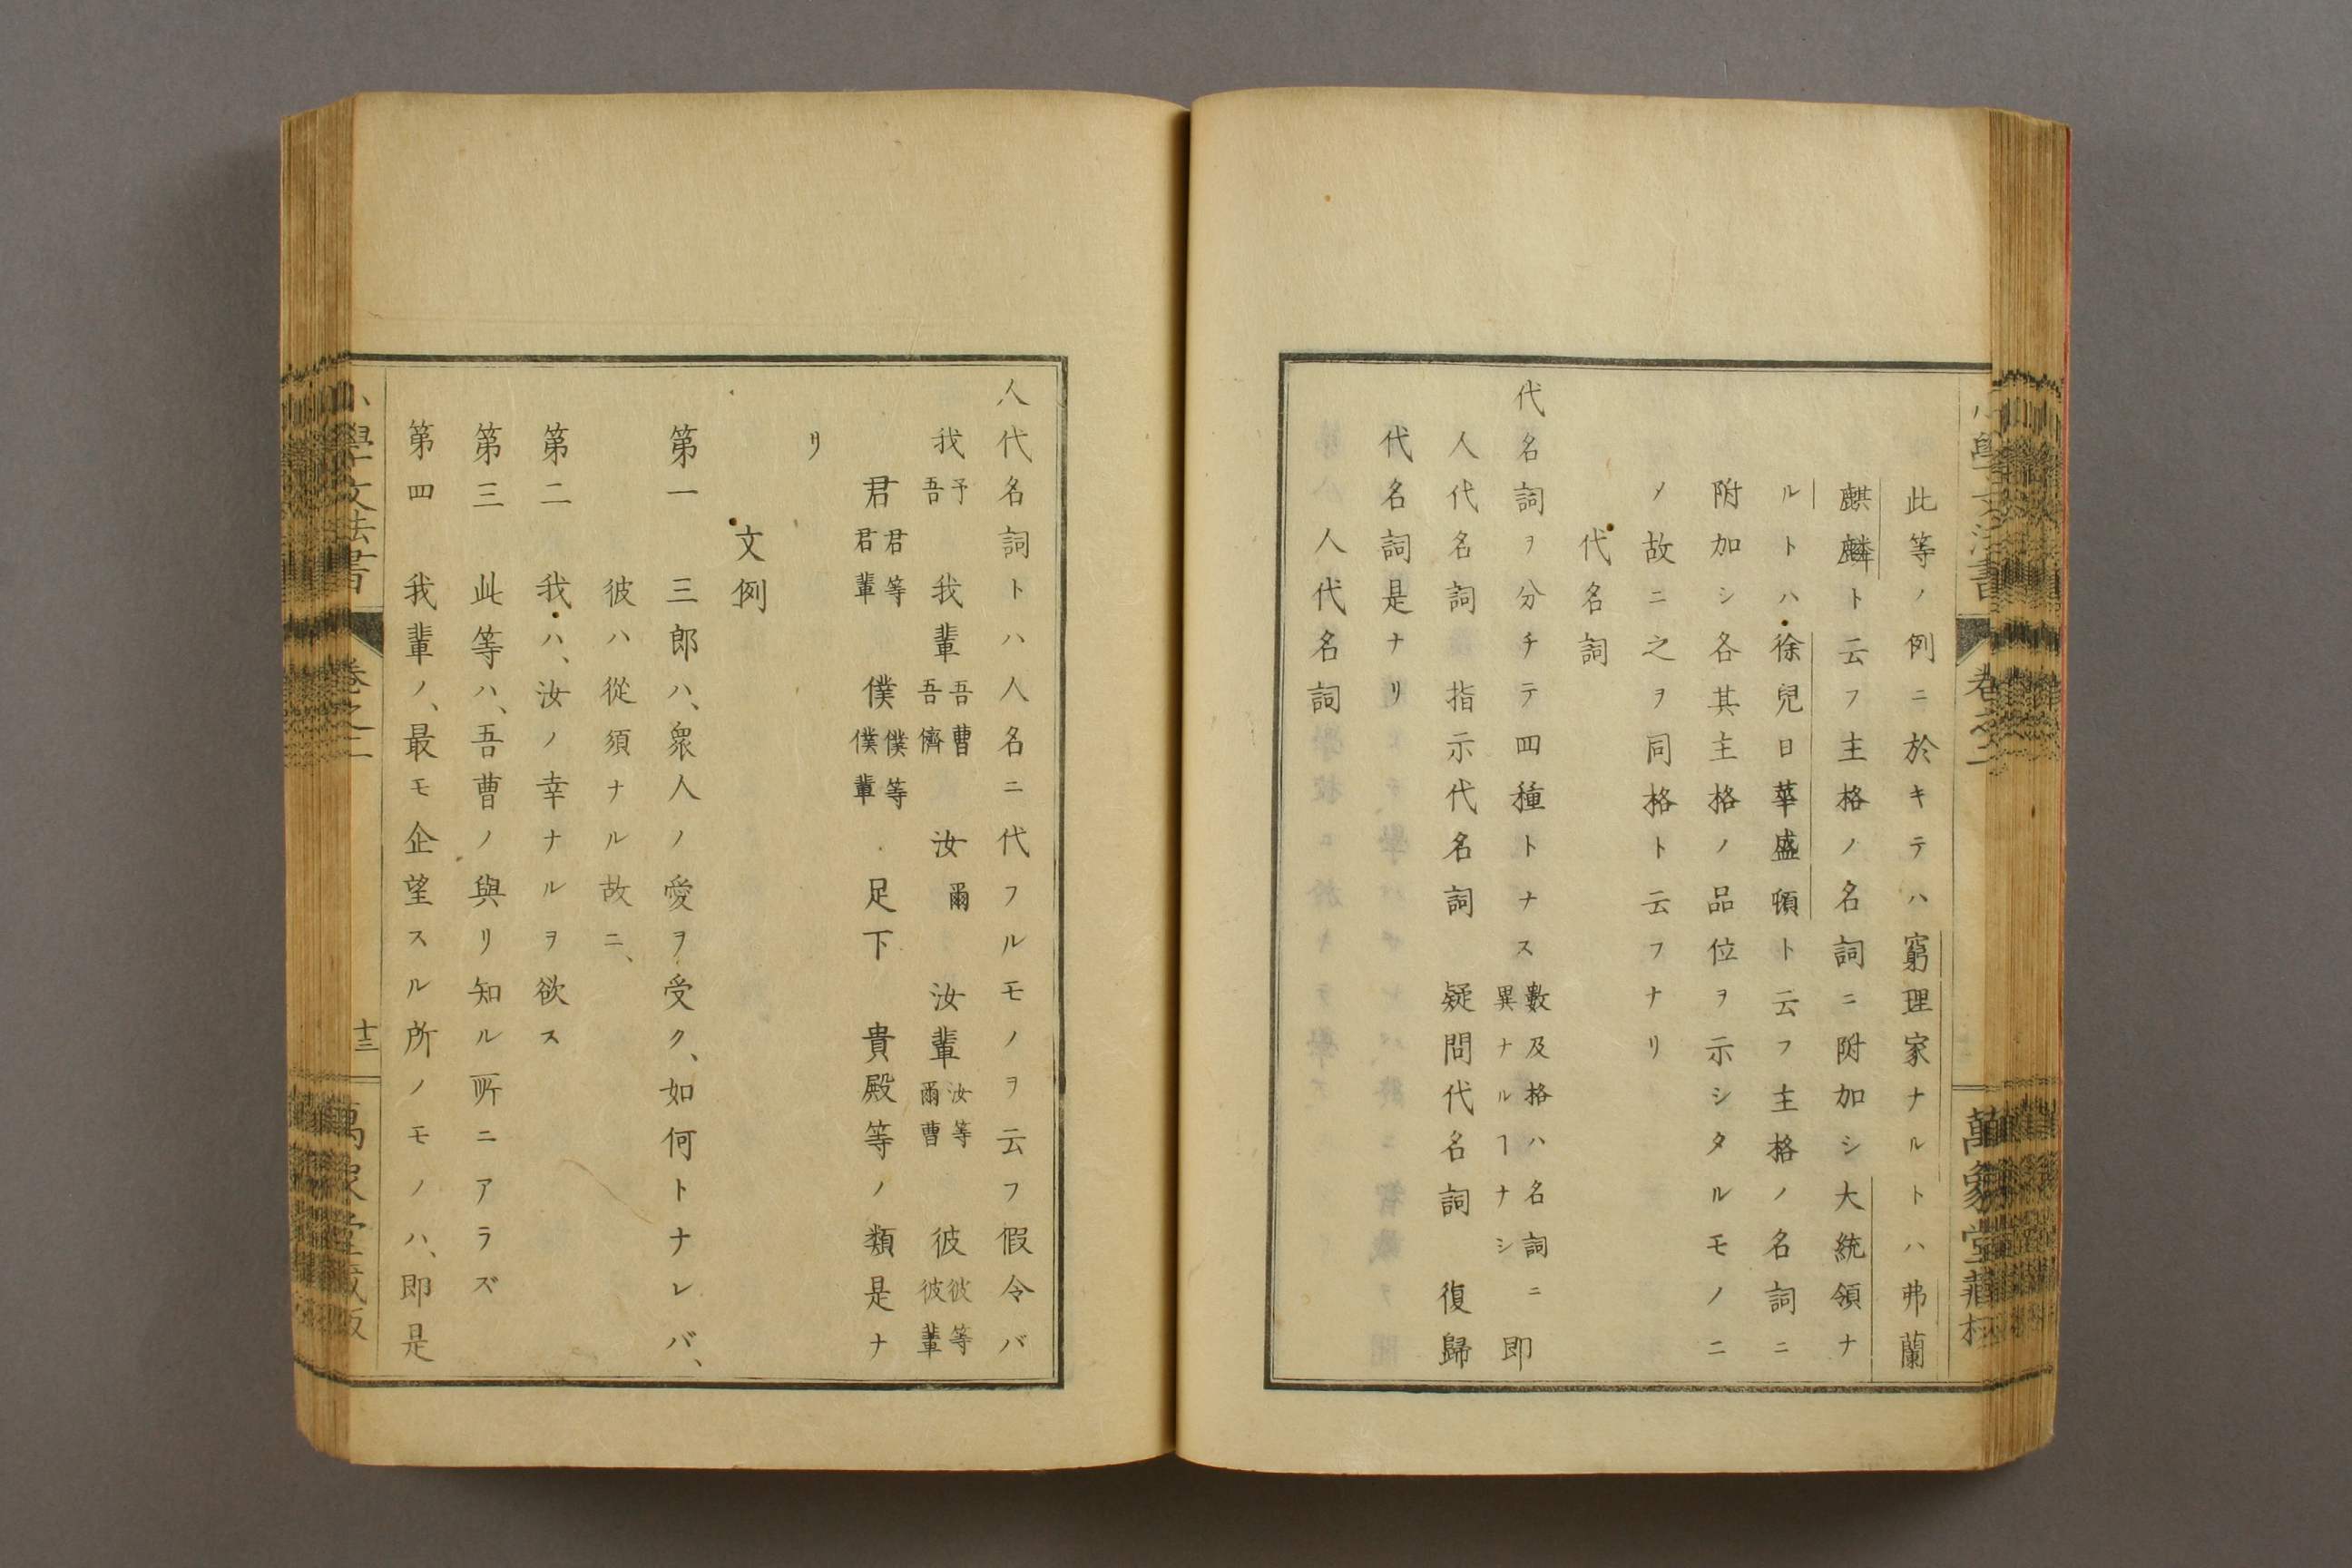 此等ノ例ニ於キテハ窮理家ナルトハ弗蘭
麒麟ト云フ主格ノ名詞ニ附加シ大統領ナ
ルトハ徐兒日華盛頓ト云フ主格ノ名詞ニ
附加シ各其主格ノ品位ヲ示シタルモノニ
ノ故ニ之ヲ同格ト云フナリ
代名詞
代名詞ヲ分チテ四種トナス數及格ハ名詞ニ異ナルヿナシ即
人代名詞 指示代名詞 疑問代名詞 復歸
代名詞是ナリ
人代名詞
小學文法書 卷之二 萬象堂藏梓
人代名詞トハ人名ニ代フルモノヲ云フ假令バ
我予吾 我輩吾曹吾儕 汝爾 汝輩汝等爾曹 彼彼等彼輩
君君等君輩 僕僕等僕輩 足下 貴殿等ノ類是ナ
リ
文例
第一 三郎ハ、衆人ノ愛ヲ受ク、如何トナレバ、
彼ハ從須ナル故ニ、
第二 我ハ、汝ノ幸ナルヲ欲ス
第三 此等ハ、吾曹ノ與リ知ル所ニアラズ
第四 我輩ノ、最モ企望スル所ノモノハ、即是
小學文法書 卷之二 十三 萬象堂藏版